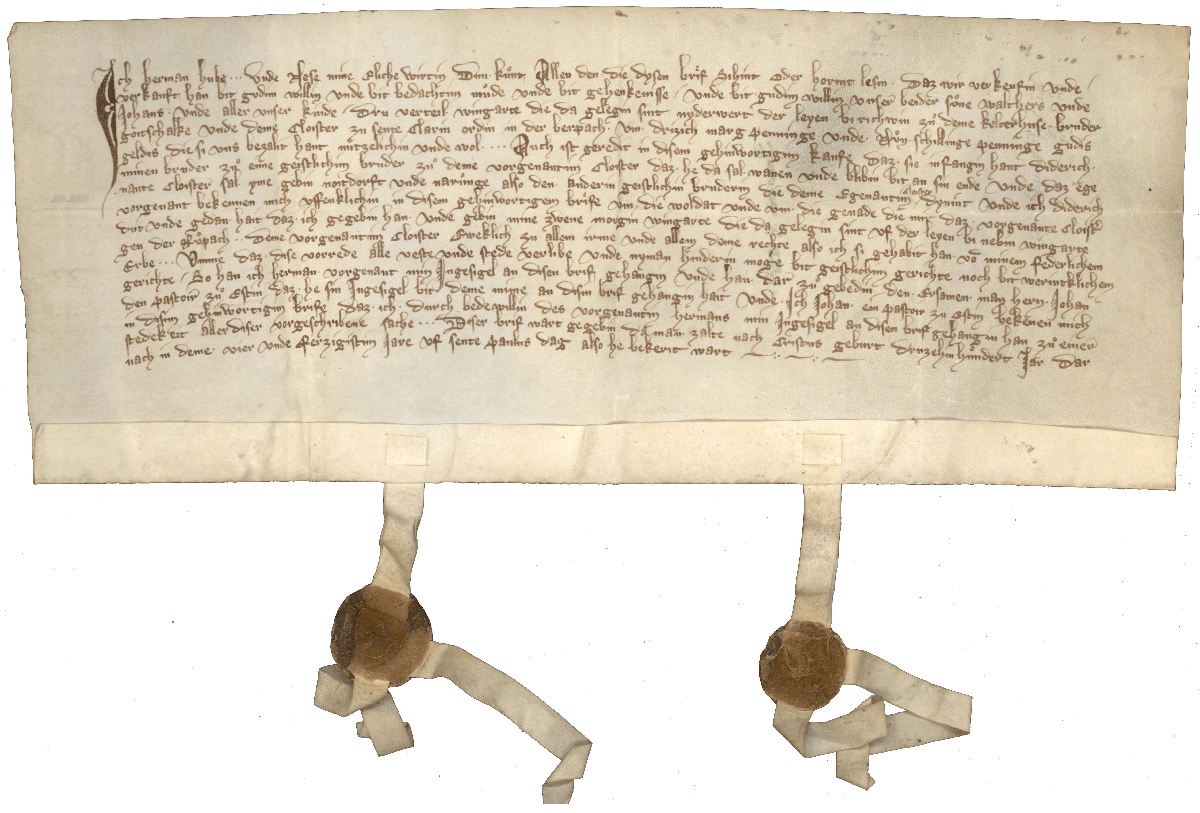 Ich herman hube ... unde Nese mine Eliche wirtin Dun kuͦnt Allen den die dysen brif Sihint Oder horint lesin · Daz wir verkeufin unde
verkauft han bit gudin willin unde bit bedachtim muͦde unde bit gehenkenisse · unde bit gudim willin unser beider soͤne walthers unde
Johans · unde aller unser kinde · Dru verteil wingarte die da gelegin sint nyderwert der leyen bi richwin zuͦ deme kelterhuse · bruder
gotschalke unde deme Cloister zu sente Clarin ordin in der berpach · um drizich marg penninge unde · Nuͦn schillinge penninge gudis
geldis die si uns bezalt hant nutzelichin unde wol ... Auch ist geredit in disem gehinwortigim kaufe daz sie infangin hant diderich ·
minen bruder zuͦ eime geistlichim bruder zuͦ deme vorgenantim Cloister daz he da sal wanen unde blibin bit an sin ende unde daz ege
nante Cloister sal yme gebin noitdorft unde naruͦnge also den anderin geistlichin bruderin die deme Egenantim cloister dynint unde ich diderich
vorgenant bekennen mich uffenklichin in disem gehinwortigem brife um die woldat unde um die genade die mir daz vorgenante Cloist
dut unde gidan hait daz ich gegebin han unde gebin mine zwene morgin wingarte die da gelegin sint uf der leyen bi nebin wingarte
gen der kuͦpach · deme vorgenantim Cloister Eweklich zu allem irme unde allem deme rechte also ich si gehabit han vo minem federlichem
Erbe ... Umme daz dise vorrede alle veste unde stede verlibe unde nyman hinderin moge bit geistlichim gerichte noch bit werntklichem
gerichte · So han ich herman vorgenant min Ingesigel an disen brif gehangin unde han dar zu gebedin den Ersamen man hern Johan
den pastoir zuͦ Estin daz he sin Ingesigel bit deme mime an disin brif gehangin hait unde Ich Johan ein pastoir zu Estin bekenen mich
in disim gehinwortigim brife daz ich durch bedewillin des vorgenantin hermans min Ingesigel an disen brif gehangin han zuͦ einer
stedekeit aller diser vorgeschribene sache ... Diser brif wart gegebin da man zalte nach Cristus geburt druzehinhuͦndert Jar dar
nach in deme vier unde ferzigistim Jare uf sente paulus dag also he bekerit wart